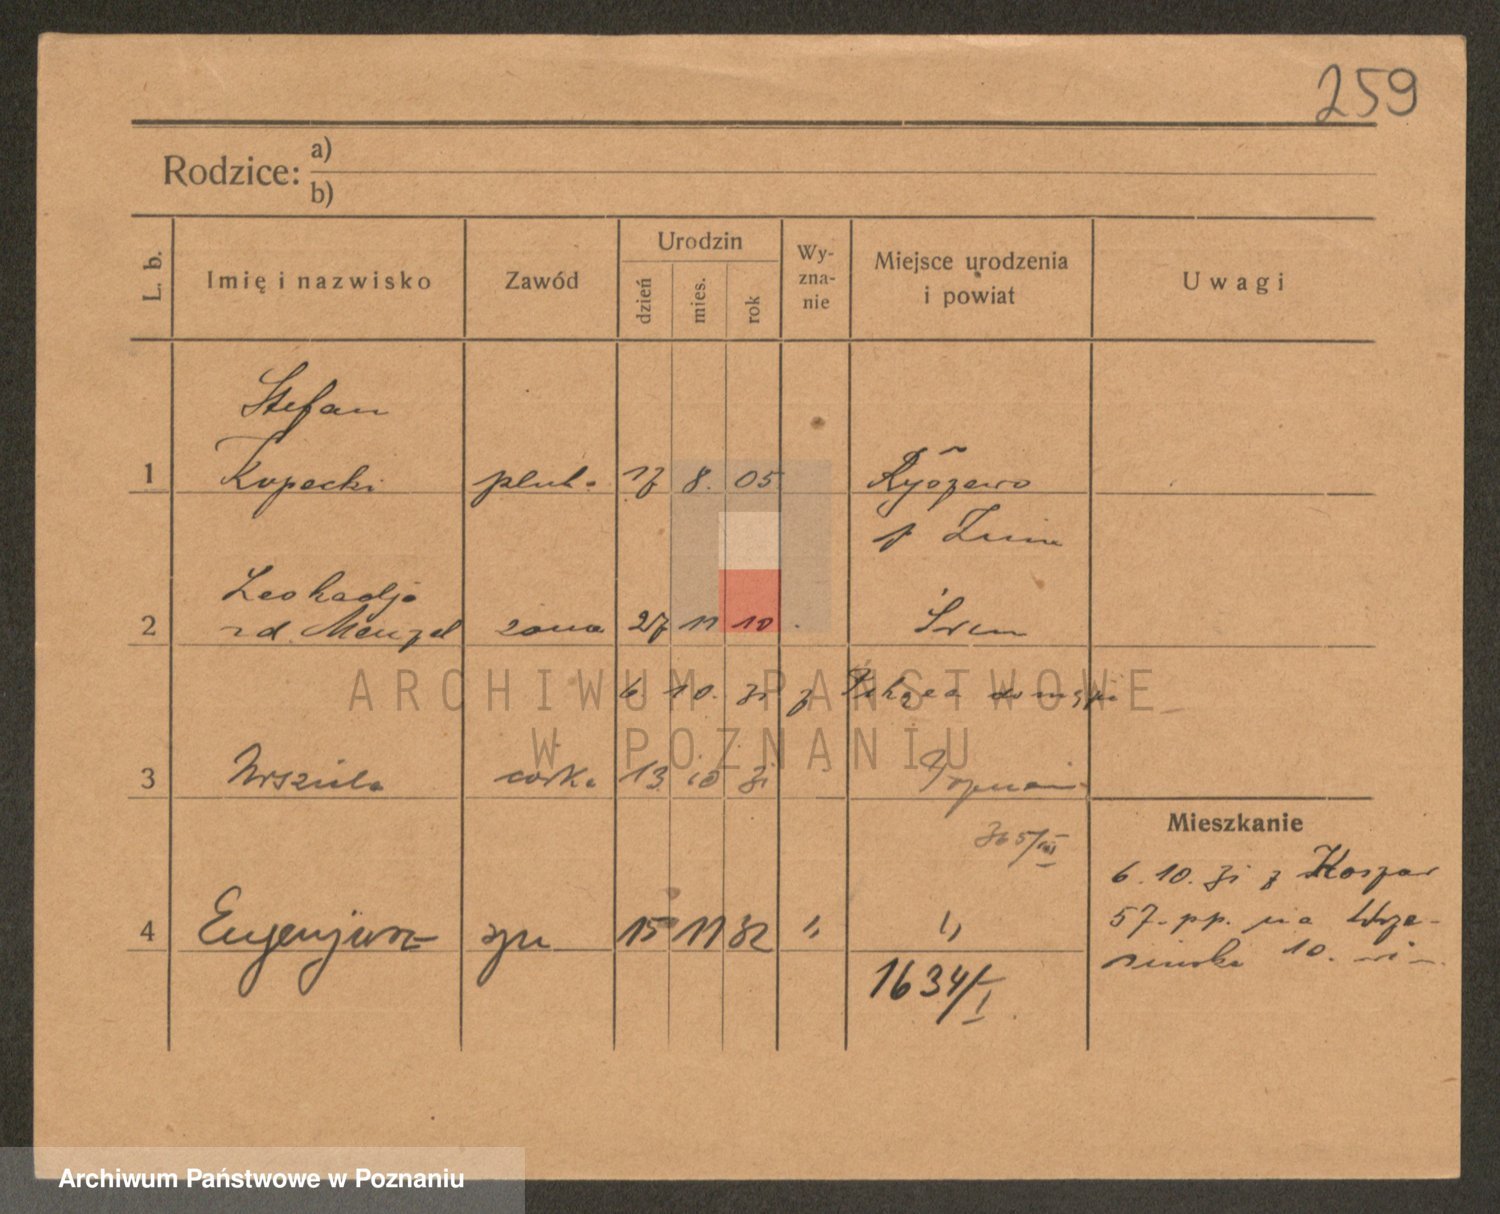 259
Rodzice: a)
b)
L. b. Imię i nazwisko Zawód Urodzin dzień mies. rok Wy-zna-nie Miejsce urodzenia i powiat Uwagi
Stefan
1 Kopecki plut. 17 8. 05
p Żnin
Leokadja
2 zd. Menzel żona 27 11 10 Śrem
6. 10. 31 z
3 Urszula córka 13 10 31 Poznań
Mieszkanie
6. 10. 31 z Koszar
57. pp. na Wrze-
4 Eugenjusz syn 15 11 32 " "
sińska 10.
1634/I
ARCHIWUM PAŃSTWOWE
W POZNANIU
Archiwum Państwowe w Poznaniu